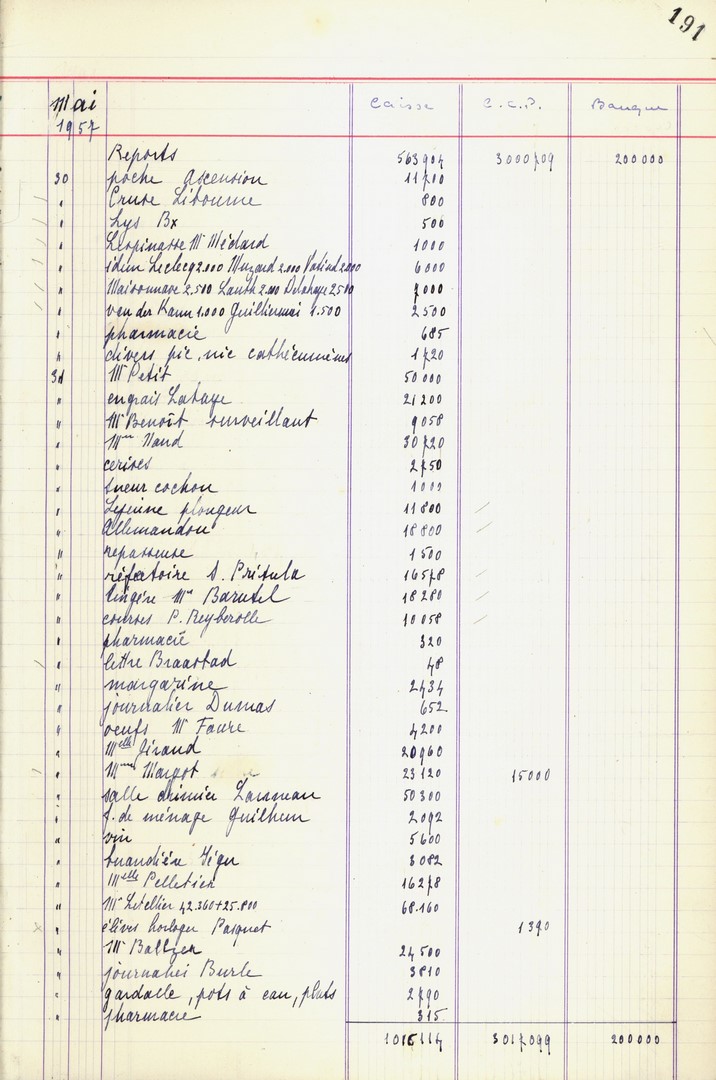 191
Mai 1957 Caisse C.C.P. Banque
Reports 563904 3000709 200000
30 poche Ascension 11700
" Cruse Libourne 800
" Lys Bx 500
" Lespinasse Mr Médard 1000
" idem Leclecq 2.000 Muzard 2.000 2.000 6000
" Maisonnave 2.500 Lauth 2.000 Delahaye 2500 7000
" van der Kam 1.000 Guilhiermai 1.500 2500
" pharmacie 685
" divers pic.nic cathécumènes 1720
31 Mr Petit 50000
" engrais Lataye 21200
" Mr Benoît surveillant 9058
" Mme Naud 30720
" cerises 2750
" tueur cochon 1000
" Lejeune plongeur 11800
" Allemandou 18800
" repasseuse 1500
" réfectoire S. Pritula 16578
" lingère Me Barutel 18280
" courses P. Reyberolle 10058
" pharmacie 320
" lettre Braastad 48
" margarine 2434
" journalier Dumas 652
" oeufs Mr Faure 4200
" Melle Giraud 20960
" Mme Margot 23120 15000
" salle Larmeau 50300
" f. de ménage Guilhem 2092
" vin 5600
" buandière Ségu 3082
" Melle Pelletier 16278
" Mr Letellier 42.360+25.800 68.160
" élèves horloger Pasquet 1390
" Mr Baltzer 24500
" journalier Burle 3810
" gardalle, pots à eau, plats 2790
" pharmacie 315
1015114 3017099 200000